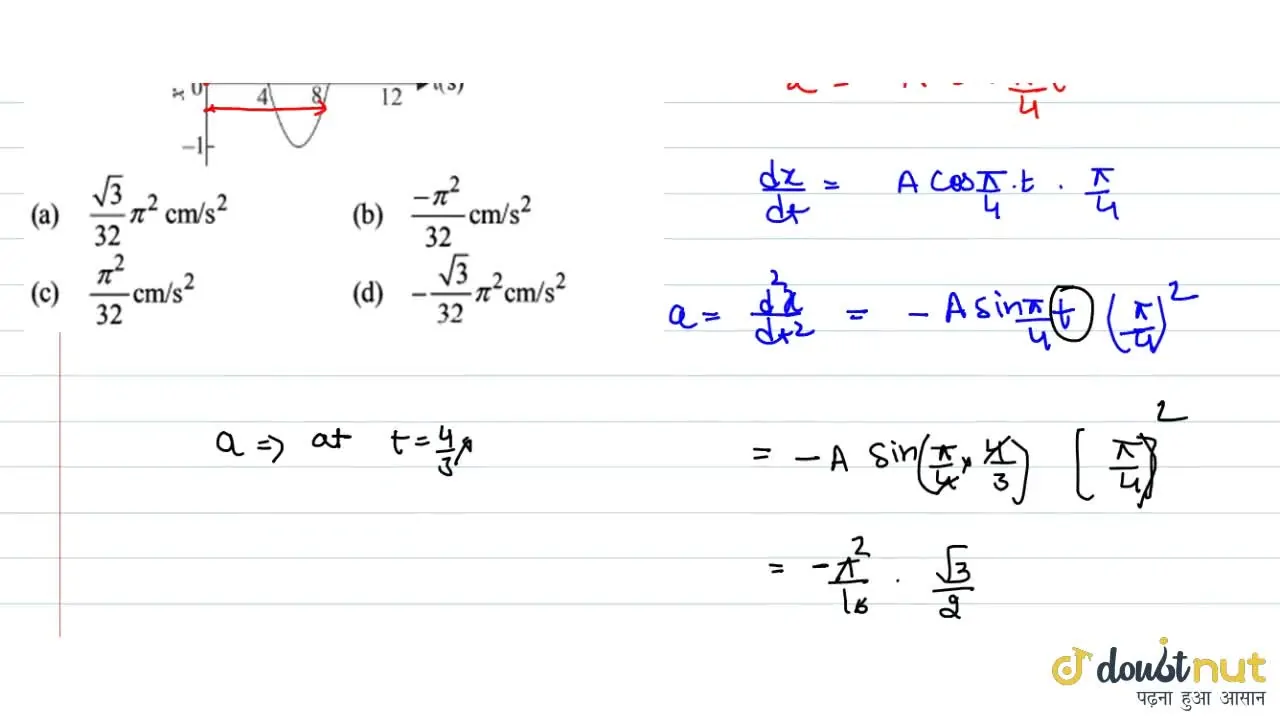 x 0 4 8 12 t(s)
–1
(a) √3/32 π² cm/s² (b) –π²/32 cm/s²
(c) π²/32 cm/s² (d) –√3/32 π² cm/s²
dx/dt = A cos π/4 . t . π/4
a = d²x/dt² = – A sin π/4 t (π/4)²
a ⇒ at t = 4/3 s
= – A sin(π/4 × 4/3) [π/4]²
= – π²/16 . √3/2
doubtnut
पढ़ना हुआ आसान